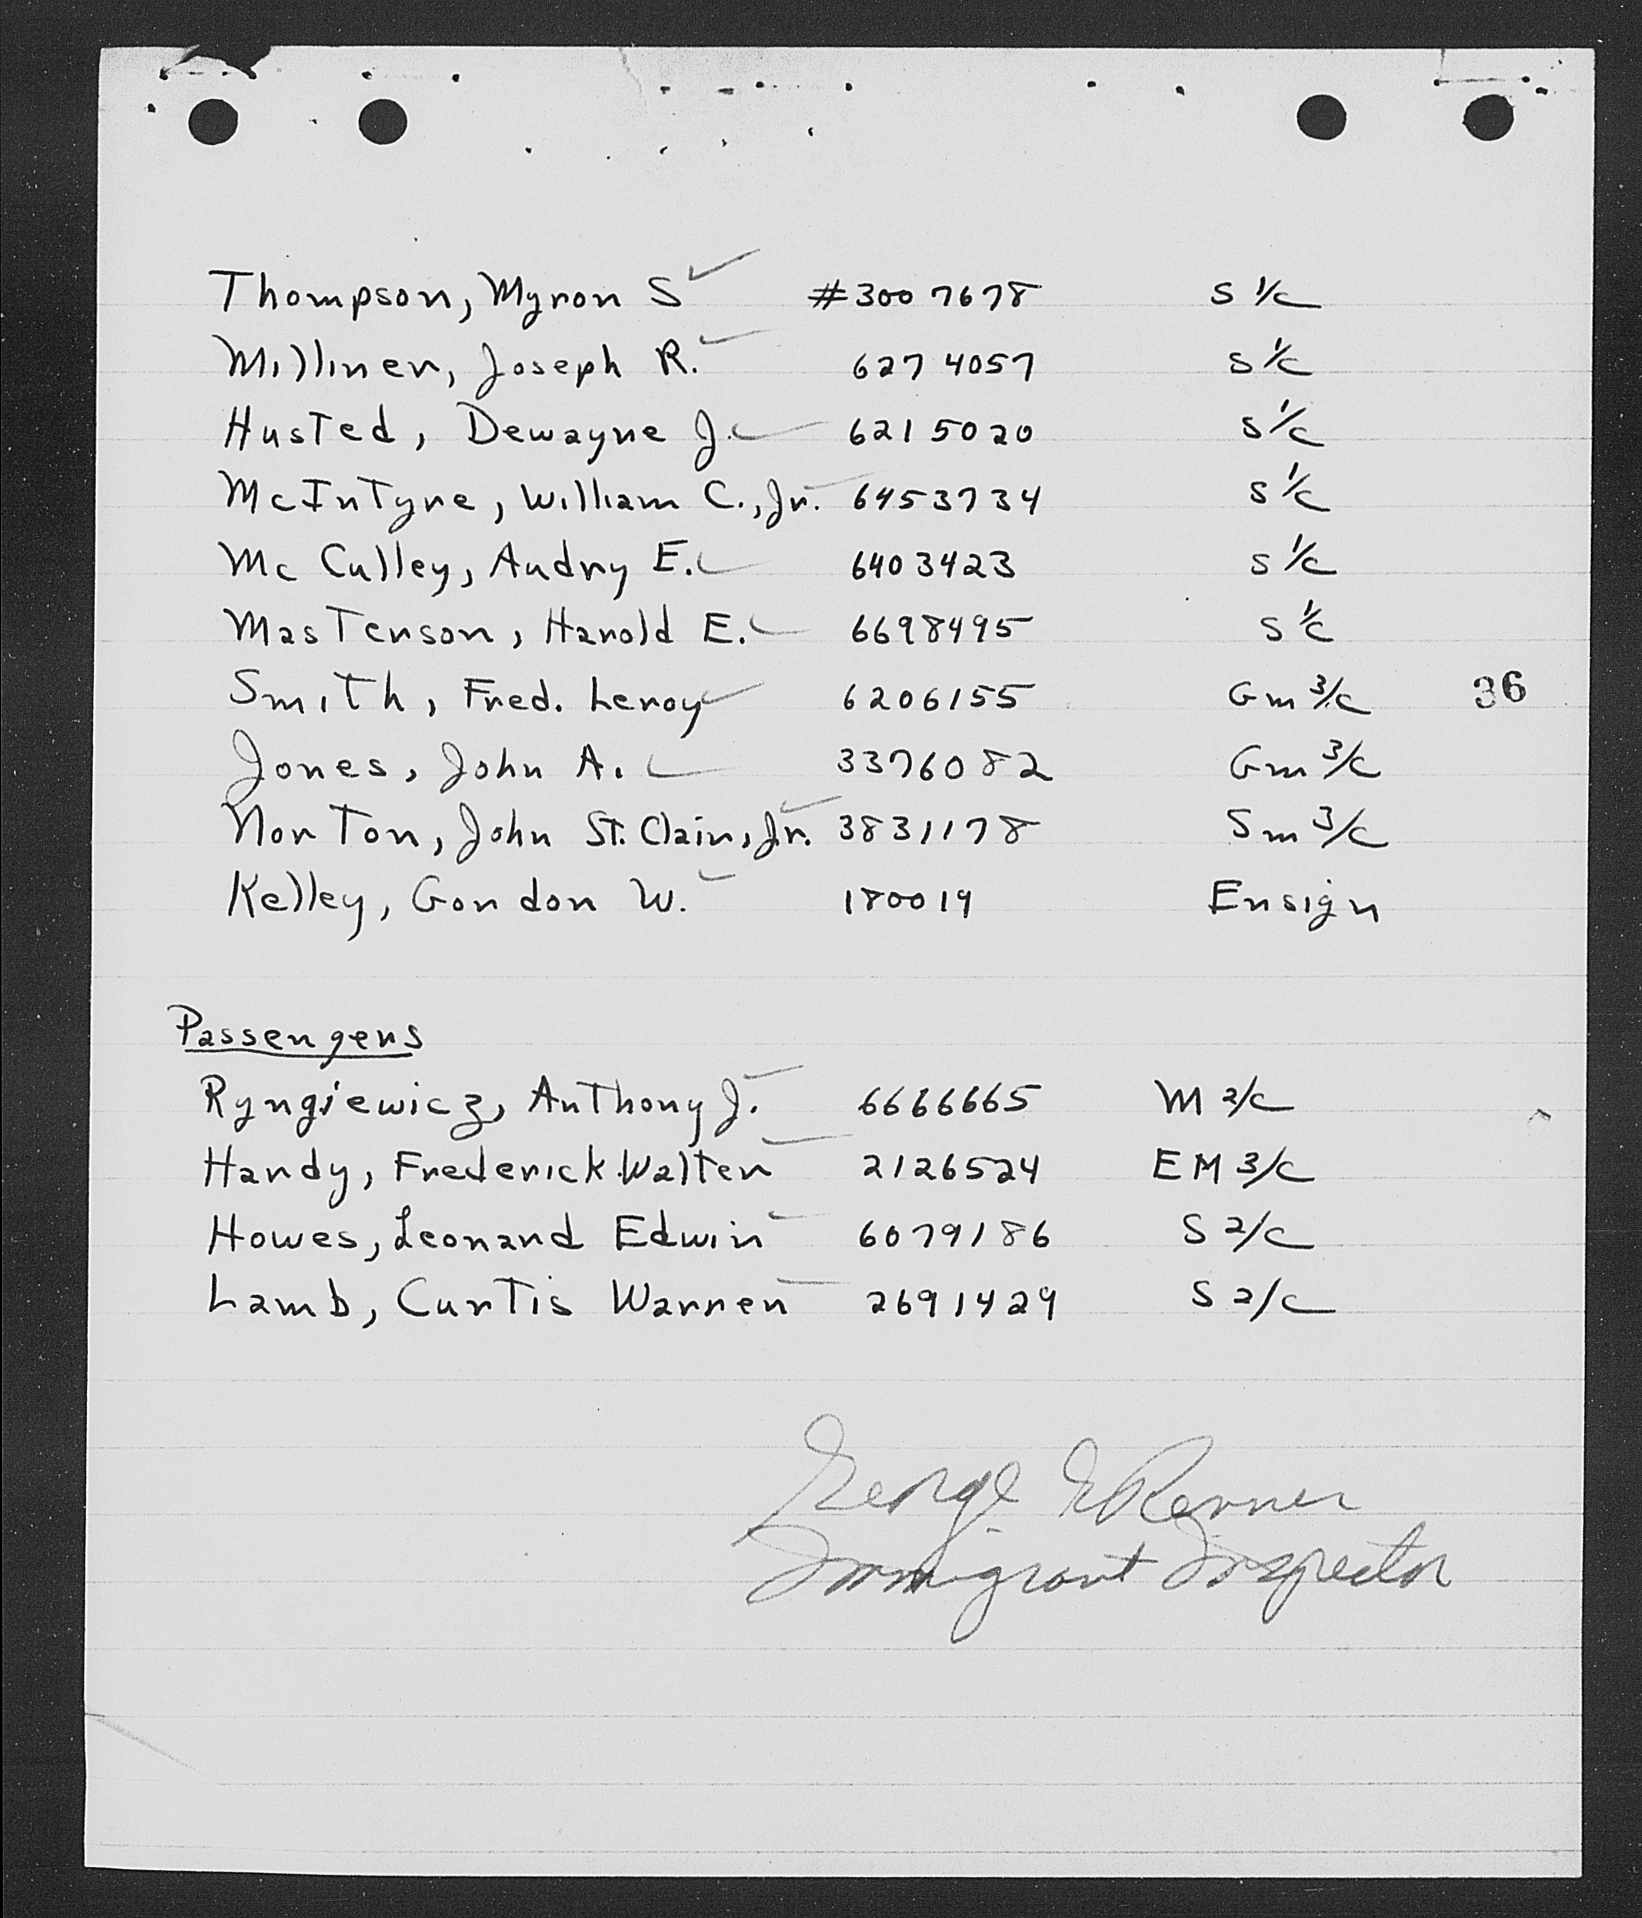 Thompson, Myron S #3007678 S 1/c
Milliner, Joseph R. 6274057 S 1/c
Husted, Dewayne J. 6215020 S 1/c
McIntyre, William C., Jr. 6453734 S 1/c
Mc Culley, Audry E. 6403423 S 1/c
Masterson, Harold E. 6698495 S 1/c
Smith, Fred. Leroy 6206155 Gm 3/c 36
Jones, John A. 3376082 Gm 3/c
Norton, John St. Clair, Jr. 3831178 Sm 3/c
Kelley, Gordon W. 180019 Ensign
Passengers
Ryngiewicz, Anthony J. 6666665 M 2/c
Handy, Frederick Walter 2126524 EM 3/c
Howes, Leonard Edwin 6079186 S 2/c
Lamb, Curtis Warren 2691429 S 2/c
George E Renner
Immigrant Inspector